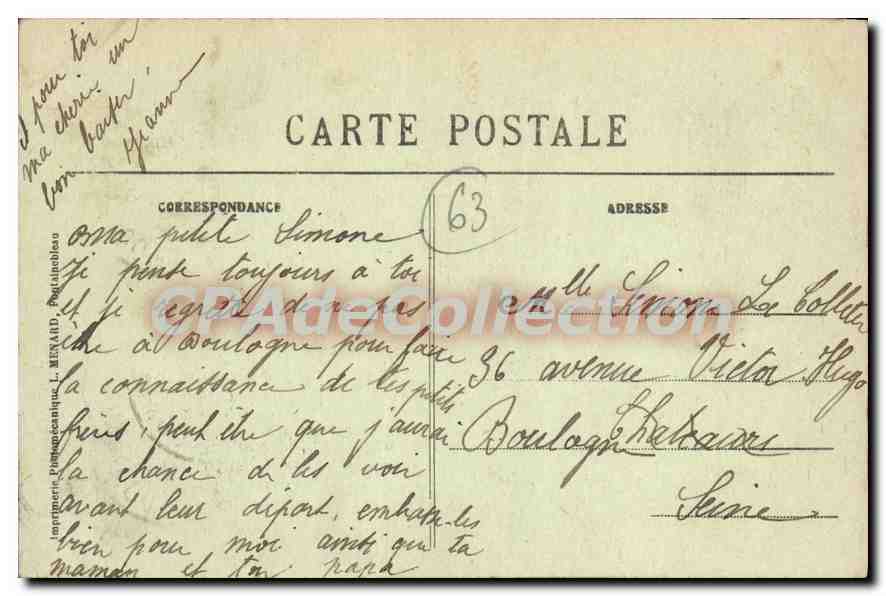 Et pour toi
ma cherie un
bon baiser,
Jeanne
CARTE POSTALE
CORRESPONDANCE
ADRESSE
63
Ma petite Simone
Je pense toujours à toi
et je regrette de ne pas
être à Boulogne pour faire
la connaissance de tes petits
frères, peut être que j'aurai
la chance de les voir
avant leur départ, embrasse-les
bien pour moi ainsi que ta
maman et ton papa
Mlle Simone Le Colleter
36 avenue Victor Hugo
Boulogne
Seine
Imprimerie Photomécanique L. MENARD, Fontainebleau
CPADeCollection.com